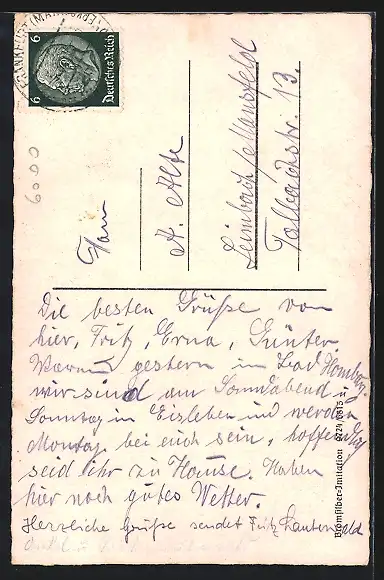 6 Deutsches Reich 6
FRANKFURT (MAIN)
6000
Frau
A. Alte
Leimbach / Mansfeld
Talbachstr. 13.
Die besten Grüße von
hier, Fritz, Erna, Günter
Waren gestern in Bad Homburg.
wir sind am Sonnabend u.
Sonntag in Eisleben und werden
Montag bei euch sein, hoffentlich
seid Ihr zu Hause. Haben
hier noch gutes Wetter.
Herzliche Grüße sendet Fritz
Bromsilber-Imitation